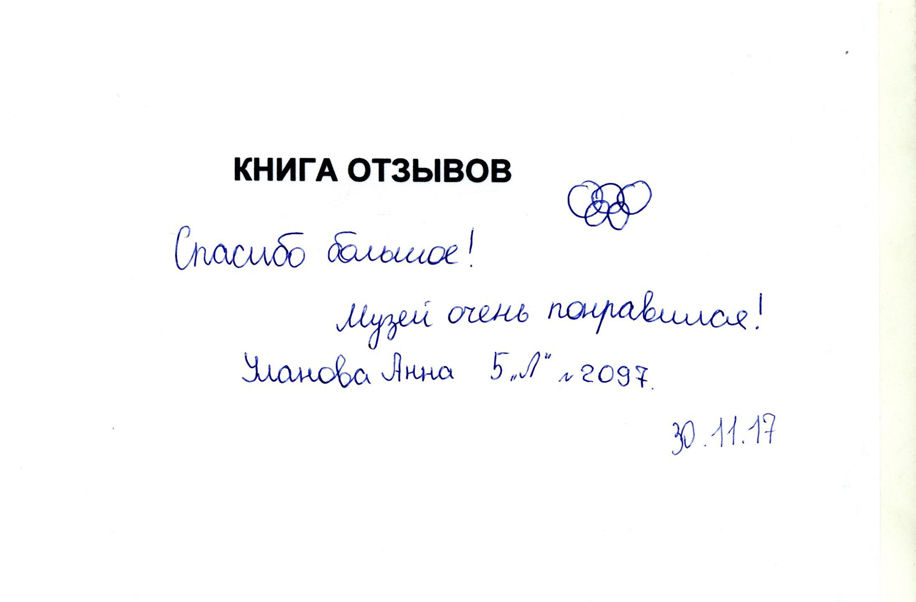 КНИГА ОТЗЫВОВ
Спасибо большое!
Музей очень понравился!
Уланова Анна 5 „Л“ № 2097.
30.11.17